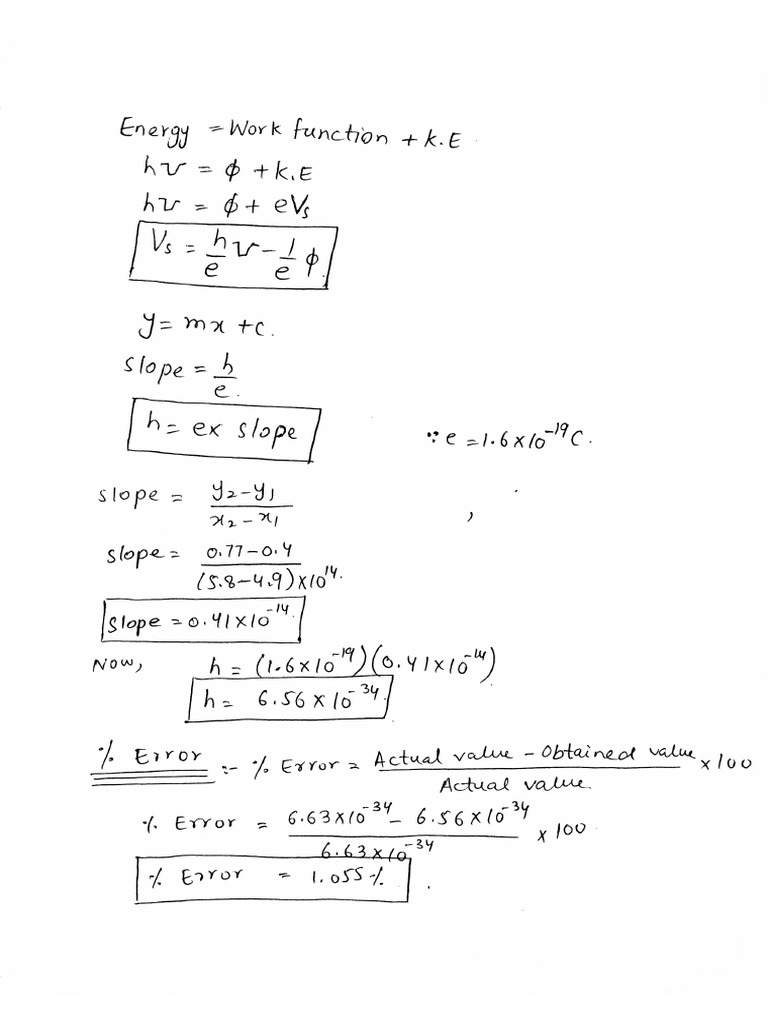 Energy = Work function + K.E
hν = ϕ + K.E
hν = ϕ + eVs
Vs = h/e ν - 1/e ϕ
y = mx + c.
slope = h/e.
h = e x slope
∵ e = 1.6 x 10^-19 C.
slope = y2 - y1 / x2 - x1
,
slope = 0.77 - 0.4 / (5.8 - 4.9) x 10^14.
slope = 0.41 x 10^-14.
Now, h = (1.6 x 10^-19)(0.41 x 10^-14)
h = 6.56 x 10^-34.
% Error :- % Error = Actual value - Obtained value / Actual value. x 100
% Error = 6.63 x 10^-34 - 6.56 x 10^-34 / 6.63 x 10^-34 x 100
% Error = 1.055 %.